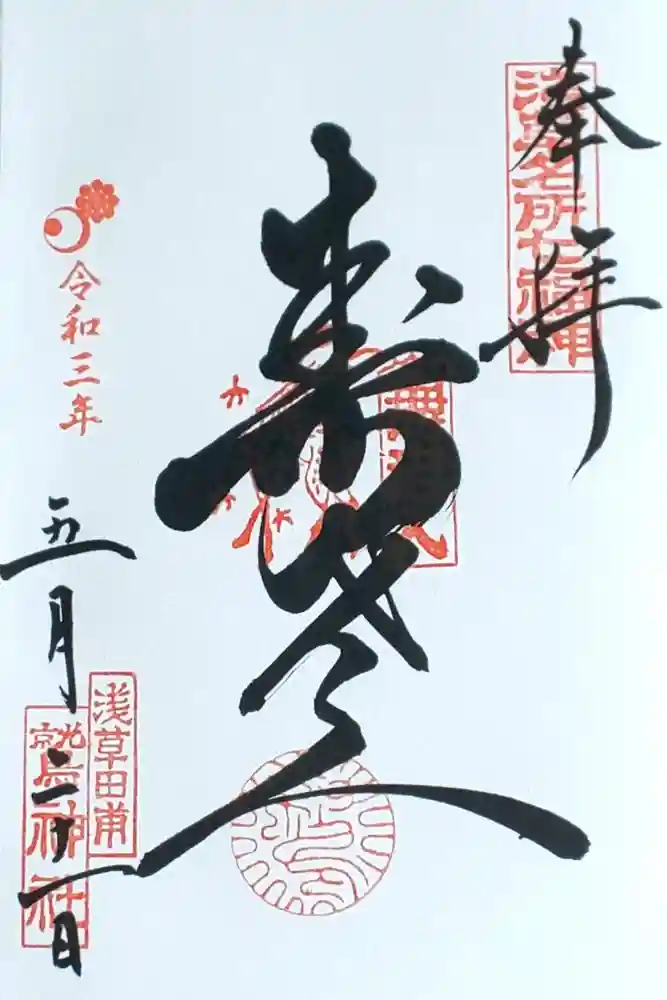 奉拝
浅草名所七福神
寿老人
令和三年
五月二十一日
浅草田甫
鷲神社